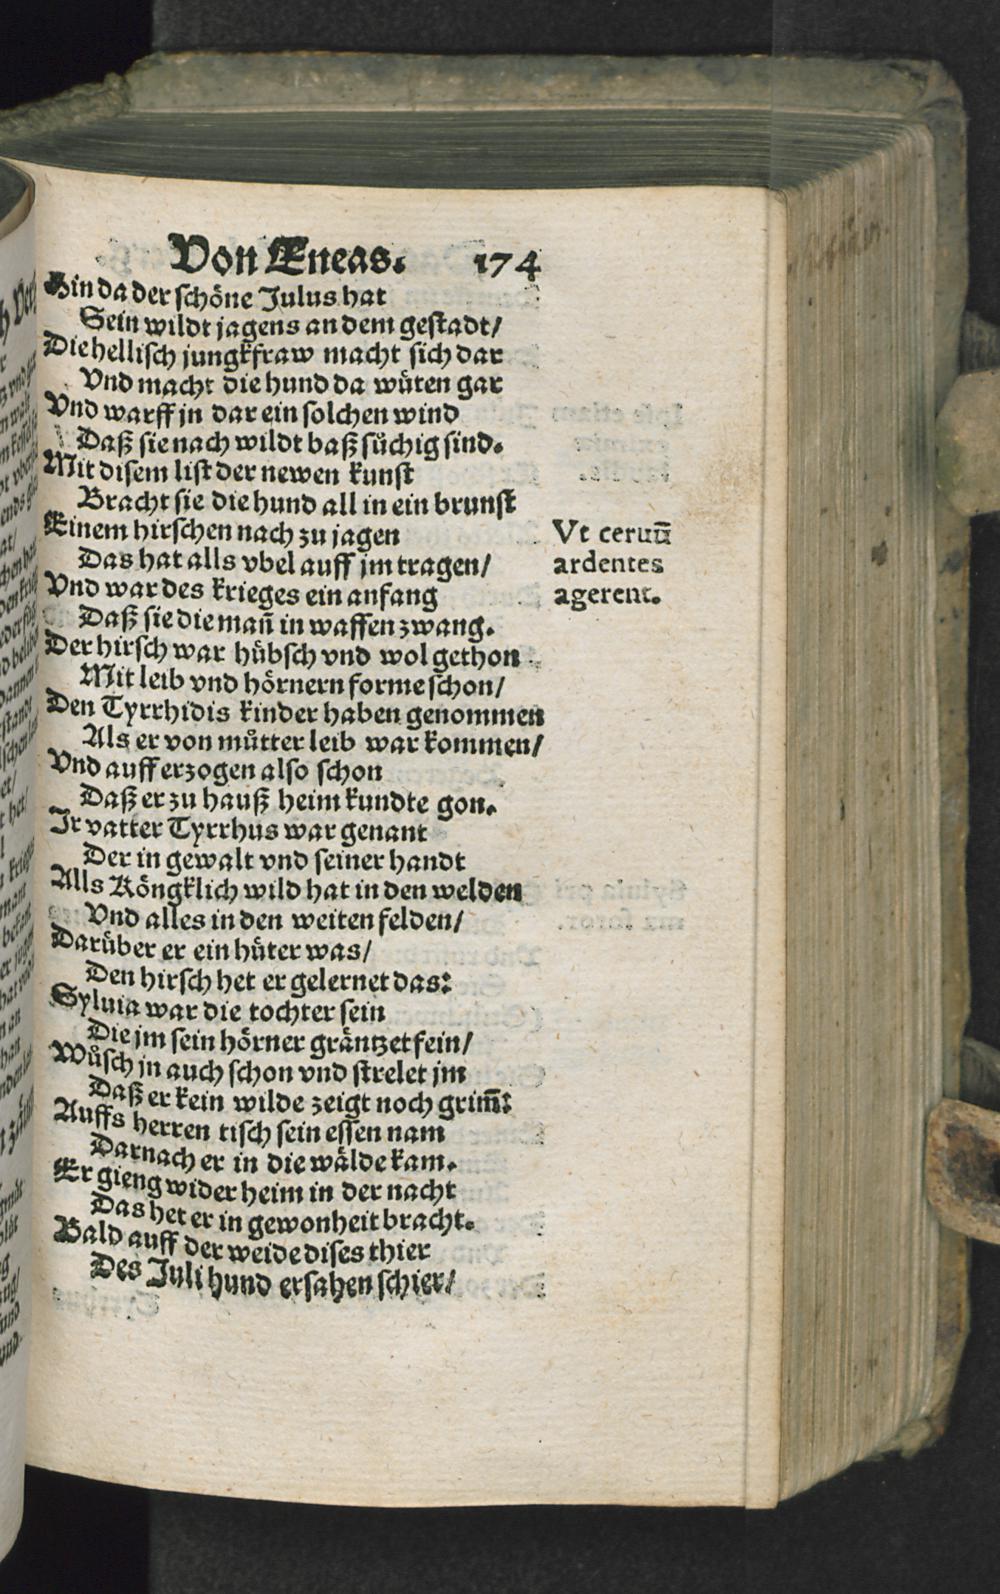 Von Æneas. 174
Hin da der schöne Julus hat
Sein wildt jagens an dem gestadt/
Die hellisch jungkfraw macht sich dar
Vnd macht die hund da wüten gar
Vnd warff jn dar ein solchen wind
Daß sie nach wildt baß süchig sind.
Mit disem list der newen kunst
Bracht sie die hund all in ein brunst
Einem hirschen nach zu jagen
Das hat alls vbel auff jm tragen/
Vnd war des krieges ein anfang
Daß sie die mañ in waffen zwang.
Der hirsch war hübsch vnd wol gethon
Mit leib vnd hörnern forme schon/
Den Tyrrhidis kinder haben genommen
Als er von můtter leib war kommen/
Vnd auff erzogen also schon
Daß er zu hauß heim kundte gon.
Ir vatter Tyrrhus war genant
Der in gewalt vnd seiner handt
Alls Köngklich wild hat in den welden
Vnd alles in den weiten felden/
Darüber er ein hüter was/
Den hirsch het er gelernet das:
Syluia war die tochter sein
Die jm sein hörner gräntzet fein/
Wůsch jn auch schon vnd strelet jm
Daß er kein wilde zeigt noch grim̃:
Auffs herren tisch sein essen nam
Darnach er in die wälde kam.
Er gieng wider heim in der nacht
Das het er in gewonheit bracht.
Bald auff der weide dises thier
Des Juli hund ersahen schier/
Vt ceruū
ardentes
agerent.